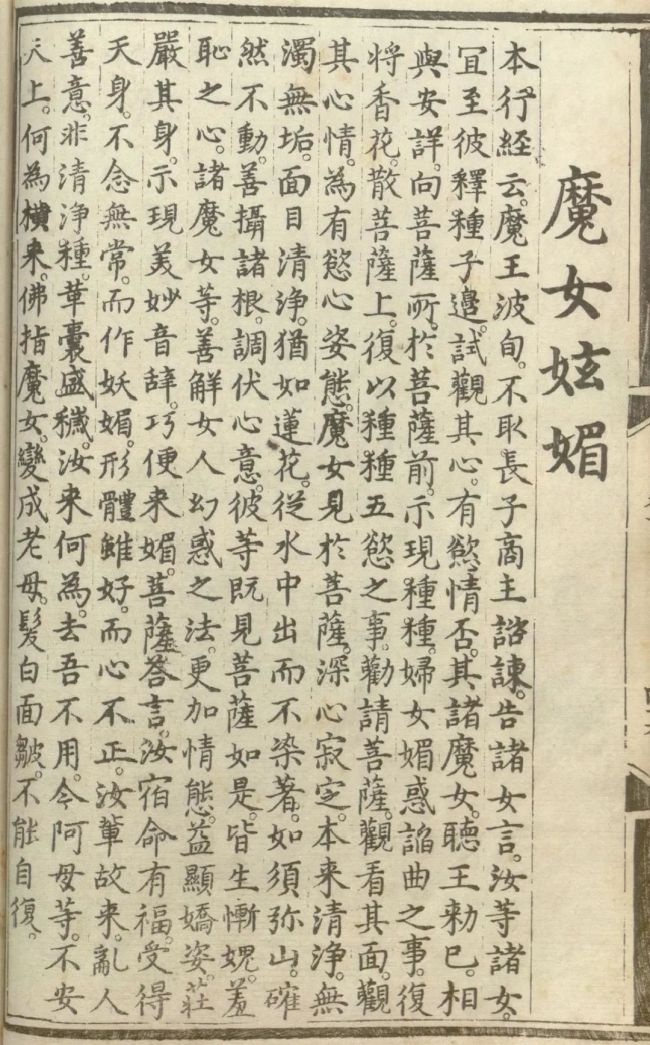 魔女妶媚
本行経云。魔王波旬。不取長子商主諮諫。告諸女言。汝等諸女。
冝至彼釋種子邉。試觀其心。有慾情否。其諸魔女。聴王勑已。相
與安詳。向菩薩所。於菩薩前。示現種種。婦女媚惑諂曲之事。復
将香花。散菩薩上。復以種種五慾之事。勸請菩薩。觀看其面。觀
其心情。為有慾心姿態。魔女見於菩薩。深心寂定。本来清浄。無
濁無垢。面目清浄。猶如蓮花。從水中出而不染著。如須弥山。確
然不動。善攝諸根。調伏心意。彼等既見菩薩如是。皆生慚媿。羞
恥之心。諸魔女等。善解女人幻惑之法。更加情態。益顯嬌姿。荘
嚴其身。示現美妙音辞。巧便来媚。菩薩荅言。汝宿命有福。受得
天身。不念無常。而作妖媚。形體雖好。而心不正。汝輩故来。亂人
善意。非清浄種。革囊盛穢。汝来何為。去吾不用。今阿母等。不安
天上。何為横来。佛指魔女。變成老母。髪白面皺。不能自復。